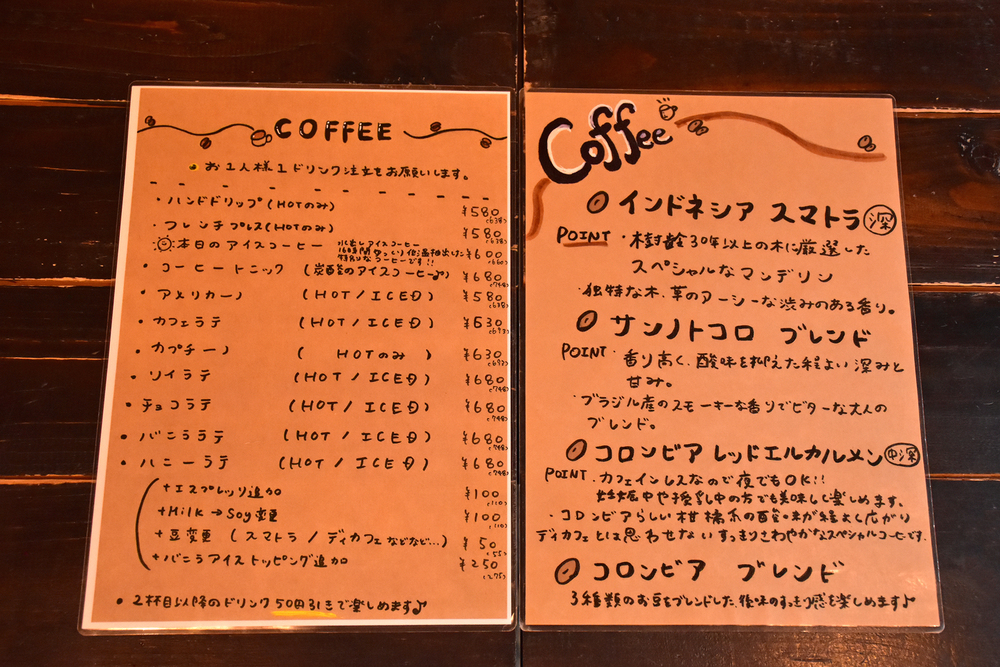 COFFEE
お1人様1ドリンク注文をお願いします。
・ハンドドリップ(HOTのみ) ¥580 (638)
・フレンチプレス(HOTのみ) ¥580 (638)
本日のアイスコーヒー 水出しアイスコーヒー ¥600 (660)
16時間ゆっくり低温抽出した
特別なコーヒーです!!
・コーヒートニック (炭酸のアイスコーヒー♪) ¥680 (748)
・アメリカーノ (HOT / ICED) ¥580 (638)
・カフェラテ (HOT / ICED) ¥630 (693)
・カプチーノ ( HOTのみ ) ¥630 (693)
・ソイラテ (HOT / ICED) ¥680 (748)
・チョコラテ (HOT / ICED) ¥680 (748)
・バニララテ (HOT / ICED) ¥680 (748)
・ハニーラテ (HOT / ICED) ¥680 (748)
+エスプレッソ追加 ¥100 (110)
+Milk→Soy変更 ¥100 (110)
+豆変更 (スマトラ / ディカフェ などなど...) ¥50 (55)
+バニラアイストッピング追加 ¥250 (275)
・2杯目以降のドリンク50円引きで楽しめます♪
Coffee
インドネシア スマトラ 深
POINT ・樹齢30年以上の木に厳選した
スペシャルなマンデリン
・独特な木、草のアーシーな渋みのある香り。
サンノトコロ ブレンド
POINT ・香り高く、酸味を抑えた程よい深みと
甘み。
・ブラジル産のスモーキーな香りでビターな大人の
ブレンド。
コロンビア レッドエルカルメン 中深
POINT ・カフェインレスなので夜でもOK!!
妊娠中や授乳中の方でも美味しく楽しめます。
・コロンビアらしい柑橘系の酸味が程よく広がり
ディカフェとは思わせないすっきりさわやかなスペシャルコーヒーです。
コロンビア ブレンド
3種類のお豆をブレンドした、後味のすっきり感を楽しめます♪